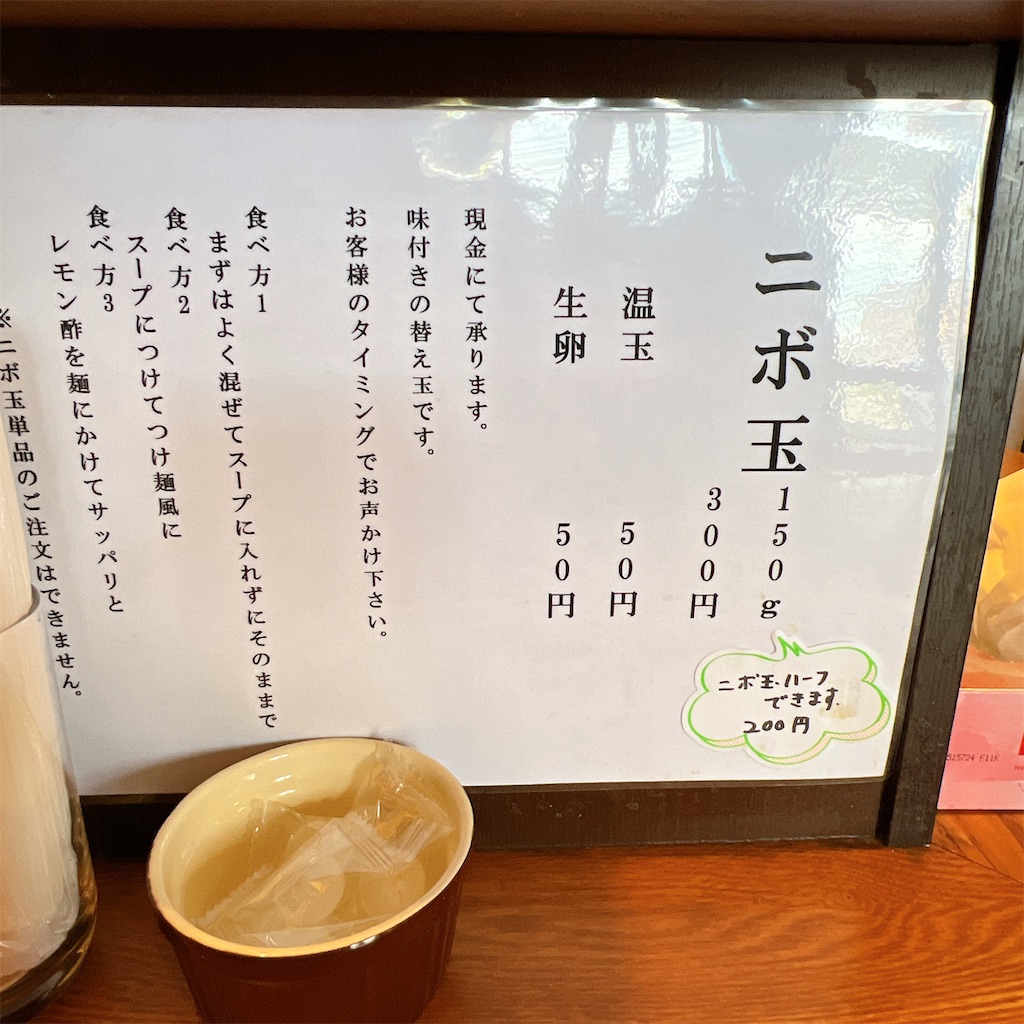 ニボ玉 150g
300円
ニボ玉ハーフ
できます
200円
温玉 50円
生卵 50円
現金にて承ります。
味付きの替え玉です。
お客様のタイミングでお声かけ下さい。
食べ方1
まずはよく混ぜてスープに入れずにそのままで
食べ方2
スープにつけてつけ麺風に
食べ方3
レモン酢を麺にかけてサッパリと
※ニボ玉単品のご注文はできません。